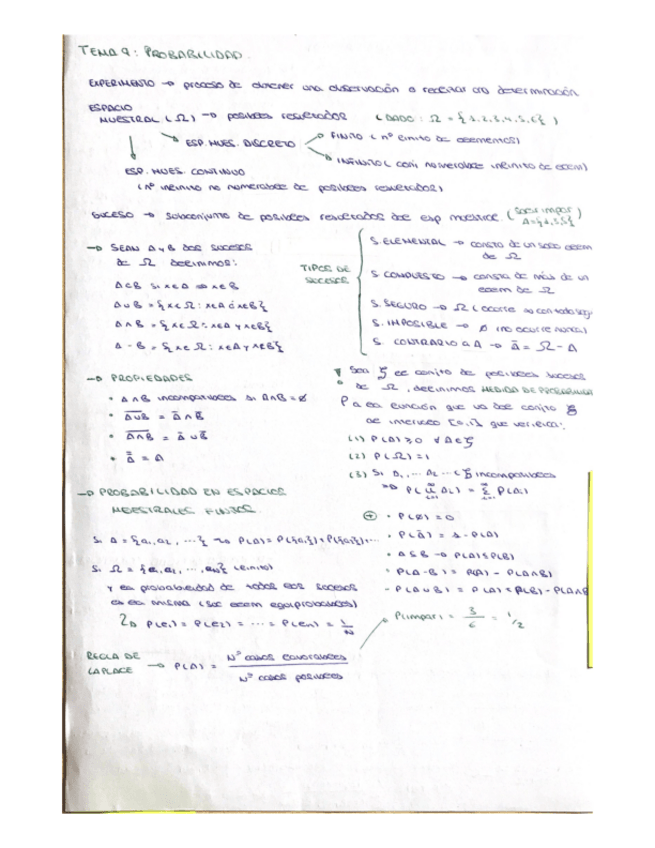 TEMA 9: PROBABILIDAD
EXPERIMENTO → proceso de obtener una observación o realizar una determinación
ESPACIO
MUESTRAL (Ω) → posibles resultados (DADO: Ω = {1,2,3,4,5,6})
ESP. MUES. DISCRETO → FINITO (nº finito de elementos)
→ INFINITO (conj. numerable infinito de elem)
ESP. MUES. CONTINUO
(nº infinito no numerable de posibles resultados)
SUCESO → subconjunto de posibles resultados del esp muestral. (Sacar impar)
A={1,3,5}
→ SEAN A y B dos sucesos
de Ω definimos:
A⊂B si x∈A ⇒ x∈B
A∪B = {x∈Ω: x∈A ó x∈B}
A∩B = {x∈Ω: x∈A y x∈B}
A - B = {x∈Ω: x∈A y x∉B}
TIPOS DE
SUCESOS
S. ELEMENTAL → consta de un solo elem
de Ω
S. COMPUESTO → consta de más de un
elem de Ω
S. SEGURO → Ω (ocurre con total segu
S. IMPOSIBLE → ∅ (no ocurre nunca)
S. CONTRARIO a A → Ā = Ω - A
→ PROPIEDADES
• A∩B incompatibles si A∩B=∅
• \overline{A∪B} = Ā∩B̄
• \overline{A∩B} = Ā∪B̄
• \overline{Ā} = A
! Sea ξ el conjto de posibles sucesos
de Ω, definimos MEDIDA DE PROBABILIDAD
P a la función que va del conjto ξ
al intervalo [0,1] que verifica:
(1) P(A) ≥ 0 ∀A∈ξ
(2) P(Ω) = 1
(3) Si A₁, ... Aₙ ... ∈ξ incompatibles
⇒ P(∪Aᵢ) = Σ P(Aᵢ)
→ PROBABILIDAD EN ESPACIOS
MUESTRALES FINITOS.
Si A = {a₁,a₂, ...} → P(A) = P({a₁})+P({a₂})+...
Si Ω = {e₁,e₂, ..., eₙ} (finito)
y la probabilidad de todos los sucesos
es la misma (suc elem equiprobables)
→ P(e₁) = P(e₂) = ... = P(eₙ) = 1/N
⊕ • P(∅) = 0
• P(Ā) = 1 - P(A)
• A⊆B → P(A)≤P(B)
• P(A-B) = P(A) - P(A∩B)
• P(A∪B) = P(A)+P(B) - P(A∩B
REGLA DE
LAPLACE → P(A) = Nº casos favorables / Nº casos posibles
P(impar) = 3/6 = 1/2